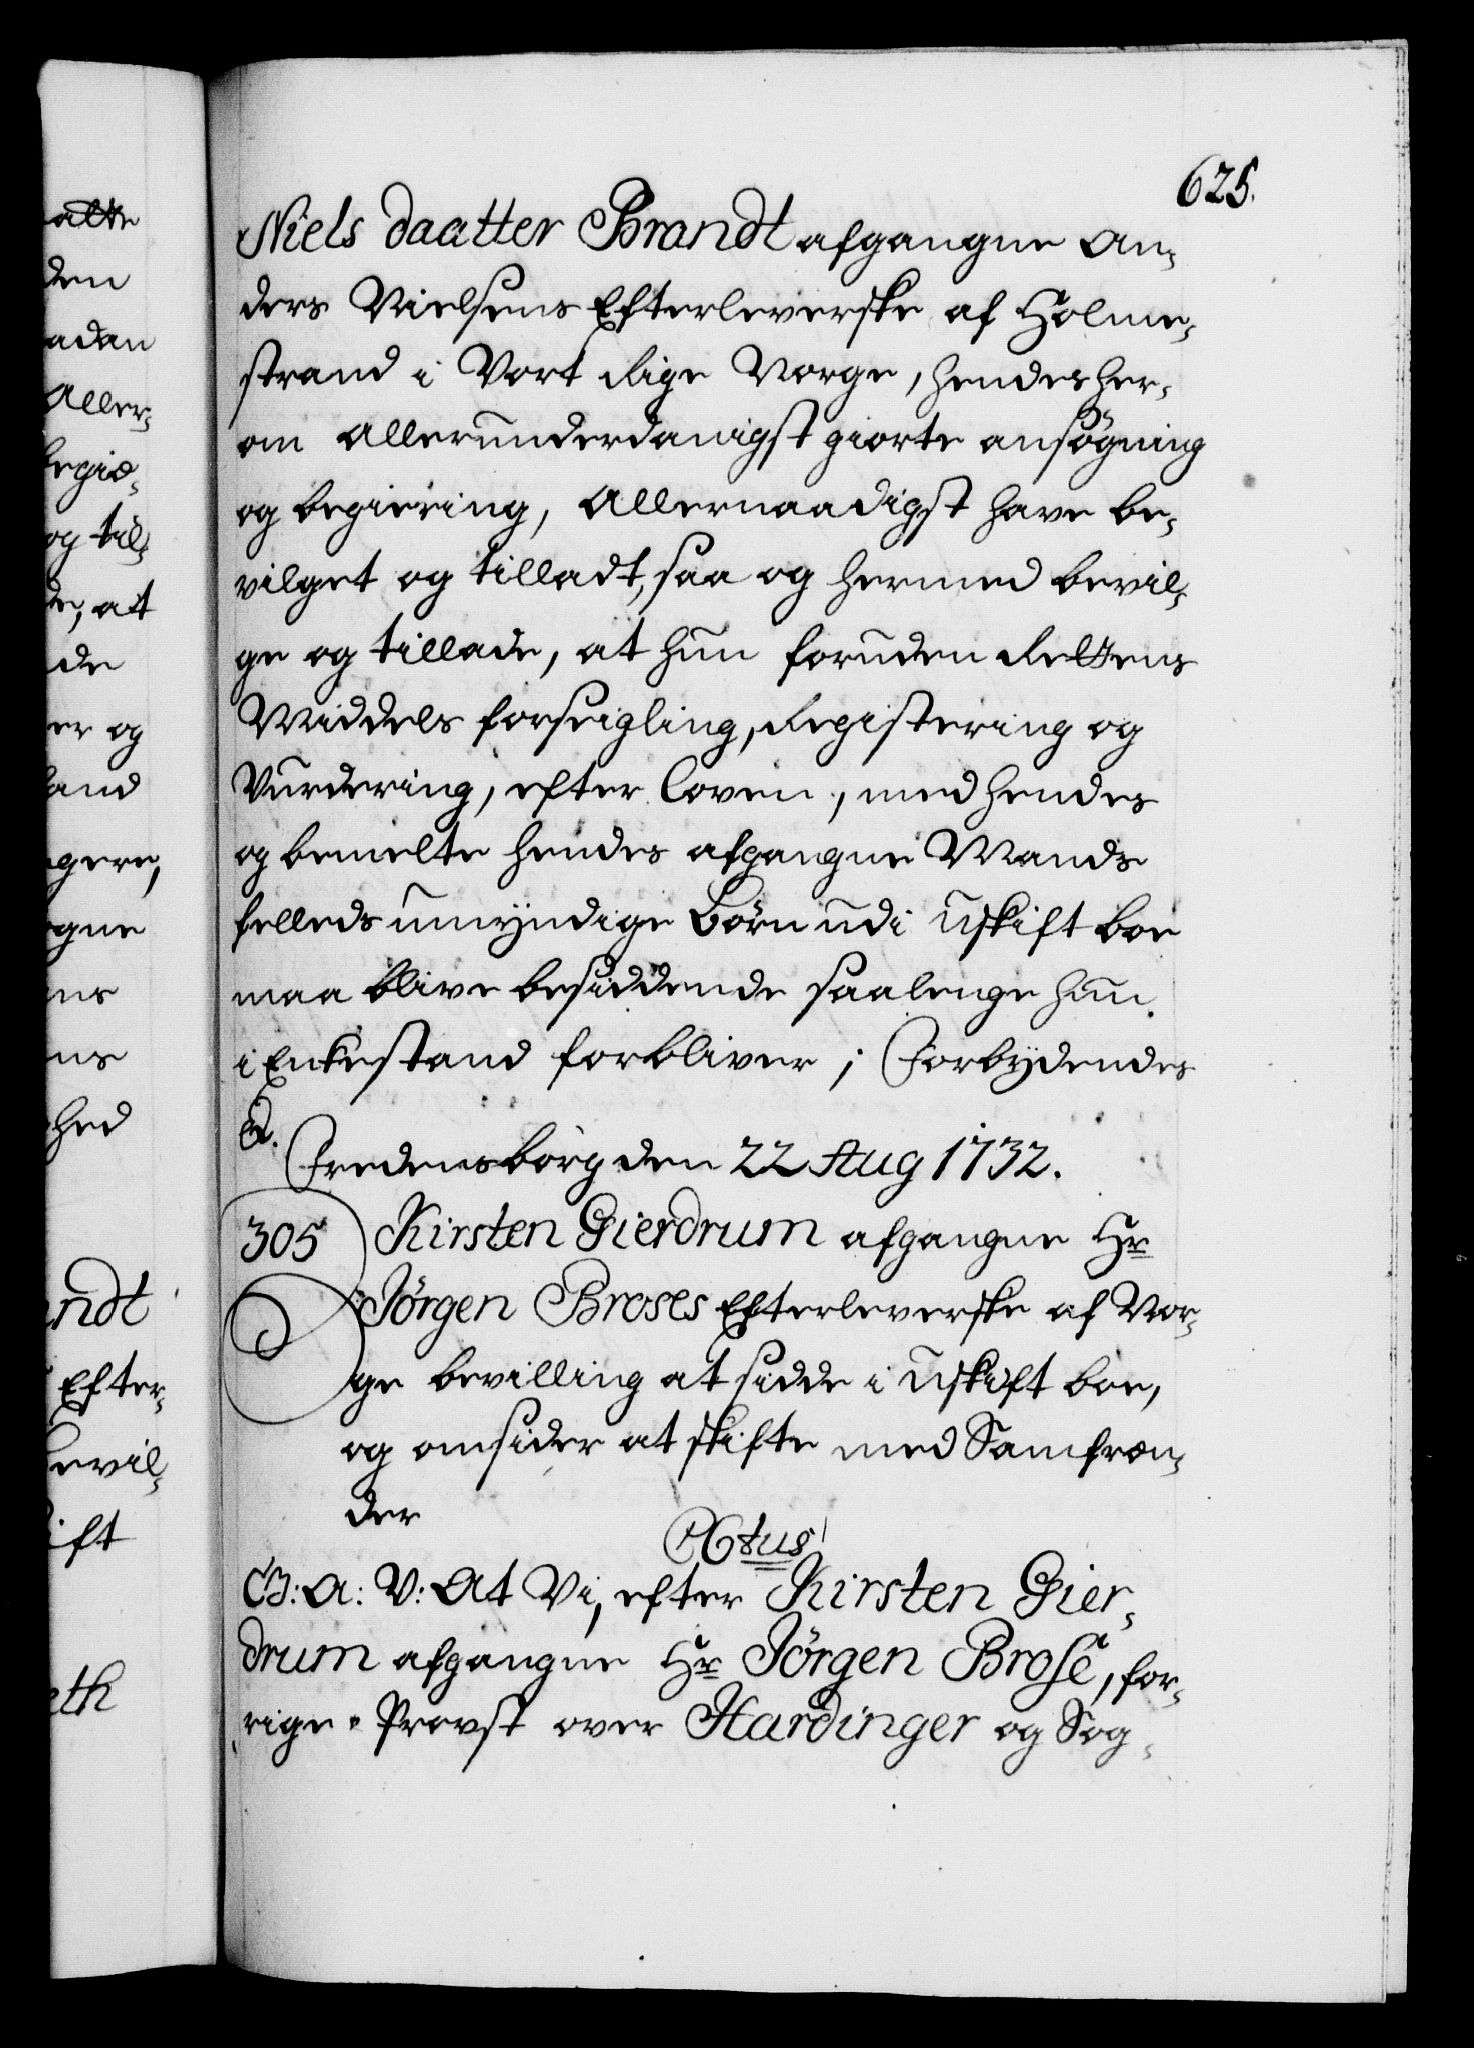 625.
Niels daatter Brandt afgangne An-
ders Nielsens Efterleverske af Holme-
strand i Vort Rige Norge, hendes her-
om allerunderdanigst giorte ansøgning
og begiering, Allernaadigst have be-
vilget og tilladt, saa og hermed bevil-
ge og tillade, at hun foruden Rettens
Middels forseigling, Registering og
Vurdering, efter Loven, med hendes
og bemelte hendes afgangne Mands
felleds umyndige Børn udi uskift boe
maa blive besiddende saalenge hun
i Enkestand forbliver; Forbydendes
&.
Fredensborg den 22 Aug 1732.
305 Kirsten Gierdrum afgangne Hr
Jörgen Broses Efterleverske af Nor-
ge bevilling at sidde i uskift boe,
og omsider at skifte med Samfræn-
der
Actus
C: A: V: At Vi, efter Kirsten Gier-
drum afgangne Hr Jörgen Brose, for-
rige Provst over Hardinger og Sog-
alte
den
adan
Aller-
begiæ-
og til-
de, at
de
er og
land
gere,
gne
ns
ns
hed
ndt
Efter-
bevil-
ift
eth